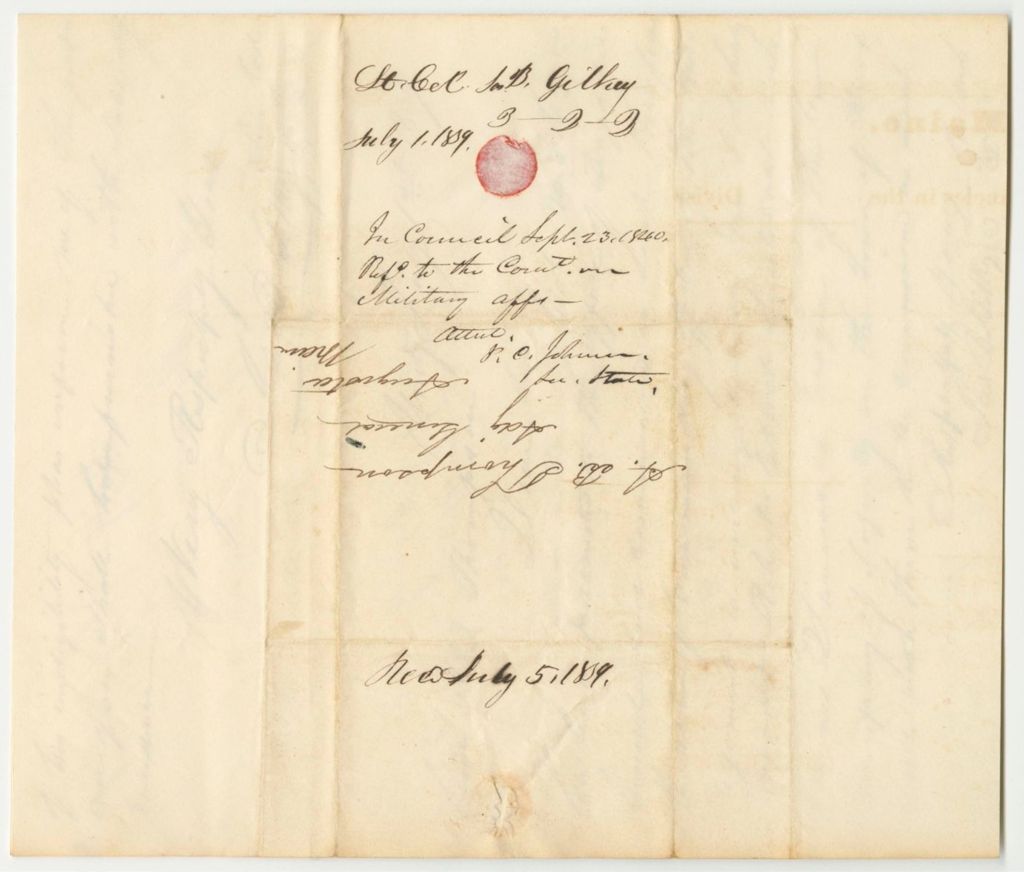 Lt. Col. Jno B. Gilkey
3 – 2 – 2
July 1. 1839.
In Council Sept. 23. 1840.
Refd. to the Comt. on
Military affs –
Attest.
P. C. Johnson.
Sec. State.
A. B. Thompson
Adj General
Augusta
Main
Recd July 5, 1839.